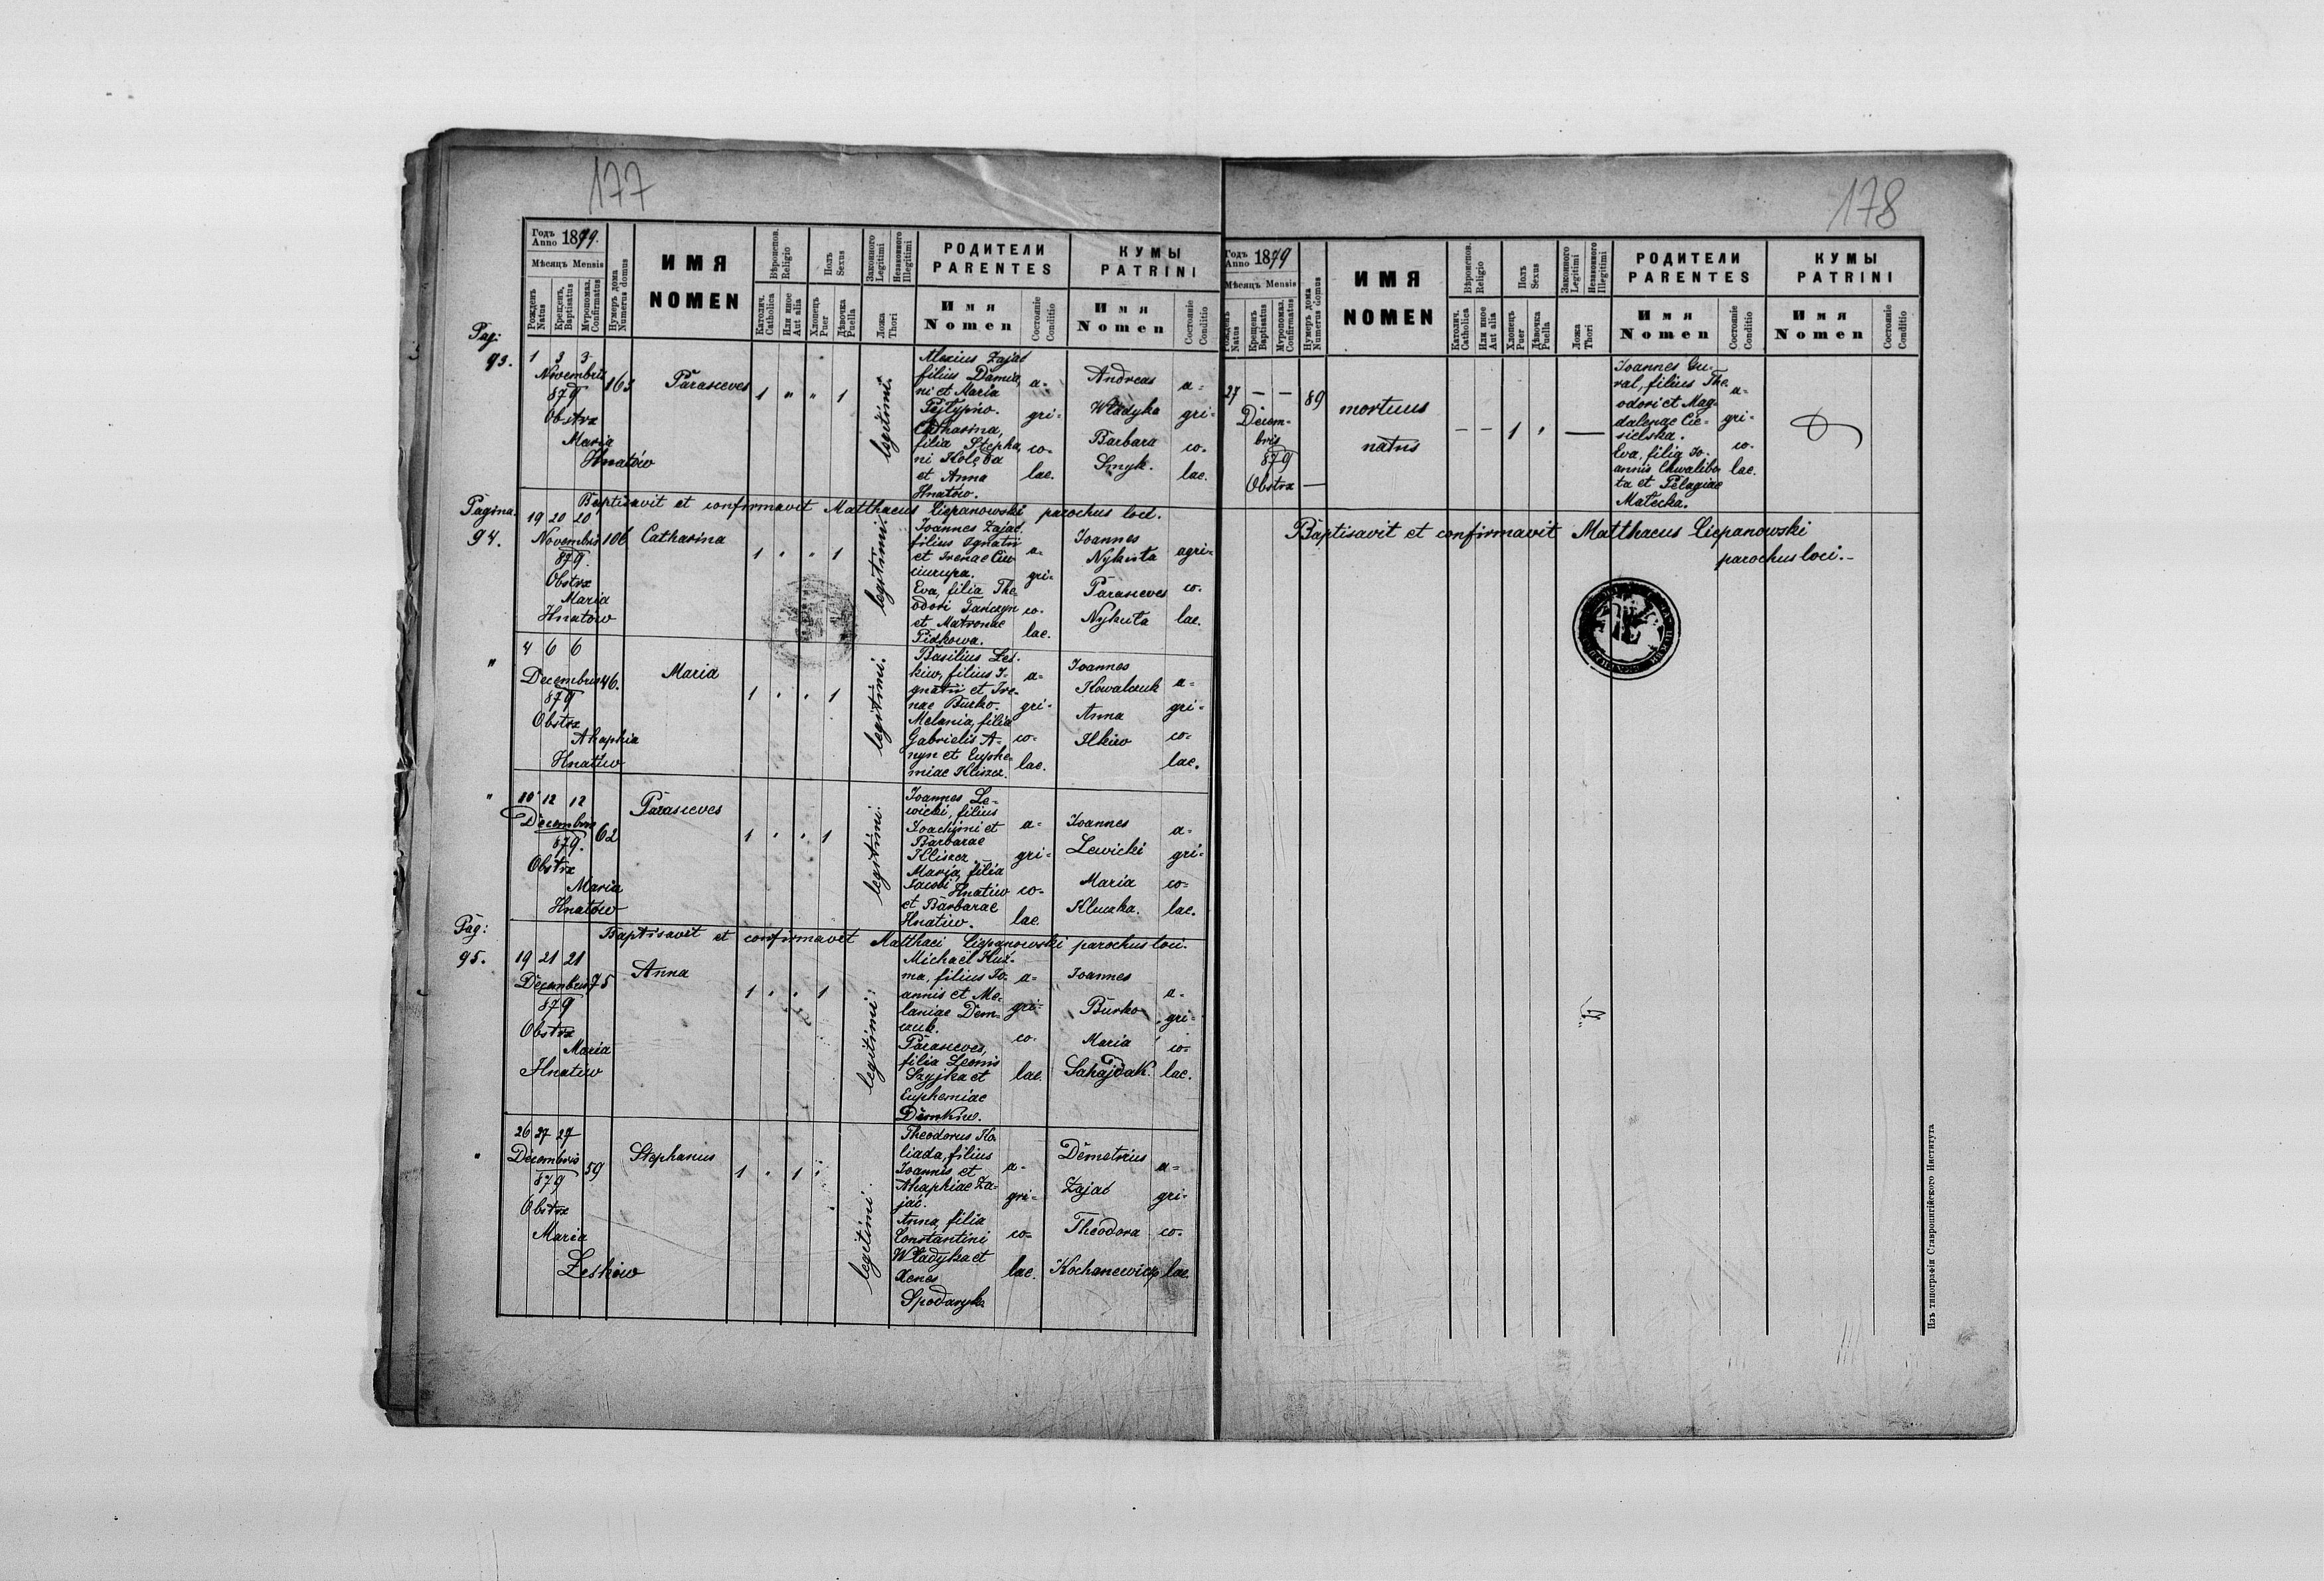 177
Годъ Anno 1879.
Мѣсяцъ Mensis
Рожденъ Natus
Крещенъ, Baptisatus
Муропомаз. Confirmatus
Нумеръ дома Numerus domus
ИМЯ
NOMEN
Вѣроиспов. Religio
Католич. Catholica
Или иное Aut alia
Полъ Sexus
Хлопецъ Puer
Дѣвочка Puella
Законного Legitimi
Незаконного Illegitimi
Ложа Thori
РОДИТЕЛИ
PARENTES
Имя
Nomen
Состояніе Conditio
КУМЫ
PATRINI
Имя
Nomen
Состояніе Conditio
Pag:
93.
1 3 3
Novembris
879
Obstrx
Maria
Hnatów
163
Parasceves
1 " " 1
legitimi.
Alexius Zając
filius Damia,
ni et Maria
Catharina,
filia Stepha,
ni Kolęda
et Anna
Hnatów.
a=
gri=
co=
lae.
Andreas
Władyka
Barbara
Smyk.
a=
gri=
co=
lae.
Baptisavit et confirmavit Matthaeus Ciepanowski parochus loci.
Pagina.
94.
19 20 20
Novembris
879.
Obstrx
Maria
Hnatów
106
Catharina
1 " " 1
legitimi.
Joannes Zając,
filius Ignatii
et Irenae Ciu-
ciurupa.
Eva, filia The
odori Tańczyn
et Matronae
Pidkowa.
a=
gri=
co.
lae.
Joannes
Nykuta
Parasceves
Nykuta
agri=
co=
lae.
"
4 6 6
Decembris
879
Obstrx
Ahaphia
Hnatiw
46.
Maria
1 " " 1
legitimi.
Basilius Les-
kiw, filius I-
gnatii et Ire-
nae Burko.
Melania, filia
Gabrielis A-
nyn et Euphe-
miae Kliszcz.
a=
gri=
co=
lae.
Joannes
Kowalczuk
Anna
Ilkiw
a=
gri=
co=
lae.
"
10 12 12
Decembris
879.
Obstrx
Maria
Hnatów
62
Parasceves
1 " " 1
legitimi.
Joannes Le-
wicki, filius
Joachimi et
Barbarae
Kliszcz.
Maria, filia
Jacobi Hnatiw
et Barbarae
Hnatiw.
a=
gri=
co=
lae
Joannes
Lewicki
Maria
Kluczka.
a=
gri=
co=
lae.
Baptisavit et confirmavit Matthaei Ciepanowski parochus loci.
Pag:
95.
19 21 21
Decembris
879
Obstrx
Maria
Hnatiw
75
Anna
1 " " 1
legitimi.
Michaël Kuź-
ma, filius Jo-
annis et Me-
laniae Dem-
czuk.
Parasceves,
filia Leonis
Szyjka et
Euphemiae
Demkiw.
a=
gri=
co.
lae.
Joannes
Burko
Maria
Sahajdak.
a=
gri=
co=
lae.
"
26 27 27
Decembris
879
Obstrx
Maria
Leśkiw
59
Stephanus
1 " 1 "
legitimi.
Theodorus Ko-
liada, filius
Joannis et
Ahaphiae Za-
jać.
Anna, filia
Constantini
Władyka et
Xenes
Spodaryk
a=
gri=
co=
lae.
Demetrius
Zając
Theodora
Kochanewicz
a=
gri=
co=
lae.
178
Годъ Anno 1879
Мѣсяцъ Mensis
Рожденъ Natus
Крещенъ Baptisatus
Муропомаз. Confirmatus
Нумеръ дома Numerus domus
ИМЯ
NOMEN
Вѣроиспов. Religio
Католич. Catholica
Или иное Aut alia
Полъ Sexus
Хлопецъ Puer
Дѣвочка Puella
Законного Legitimi
Незаконного Illegitimi
Ложа Thori
РОДИТЕЛИ
PARENTES
Имя
Nomen
Состояніе Conditio
КУМЫ
PATRINI
Имя
Nomen
Состояніе Conditio
27 — —
Decem-
bris
879
Obstrx —
89
mortuus
natus
— — 1 "
—
Joannes Gu-
ral, filius The
odori et Mag-
dalenae Cie-
sielska.
Eva, filia Jo-
annis Chwalibo
ta et Pelagiae
Małecka.
a-
gri-
co-
lae.
Baptisavit et confirmavit Matthaeus Ciepanowski
parochus loci.-
Изъ типографіи Ставропигійского Института